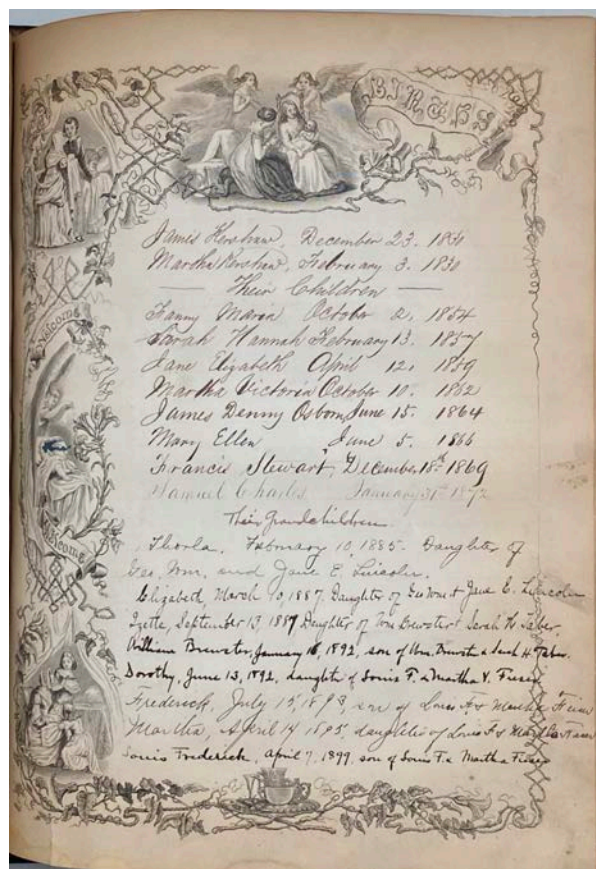 BIRTHS
James Kershaw, December 23. 1830
Martha Kershaw, February 3. 1830
Their Children
Fanny Maria October 2. 1854
Sarah Hannah February 13. 1857
Jane Elizabeth April 12. 1859
Martha Victoria October 10. 1862
James Denny Osborn June 15. 1864
Mary Ellen June 5. 1866
Francis Stewart, December 18th 1869
Samuel Charles January 31st 1872
Their Grandchildren.
Thorla, February 10, 1885. Daughter of
Geo. Wm. and Jane E. Lincoln.
Elizabeth, March 10, 1887. Daughter of Geo Wm & Jane E. Lincoln
Izette, September 13, 1887 Daughter of Wm Brewster & Sarah H. Taber.
William Brewster, January 16, 1892, son of Wm. Brewst & Sarah H Taber.
Dorothy, June 13, 1892, daughter of Louis F. & Martha V.
Frederick, July 15, 1893, son of Louis F & Martha
Martha, April 14 1895, daughter of Louis F & Martha
Louis Frederick, April 7, 1899, son of Louis F. & Martha
Welcome
Welcome